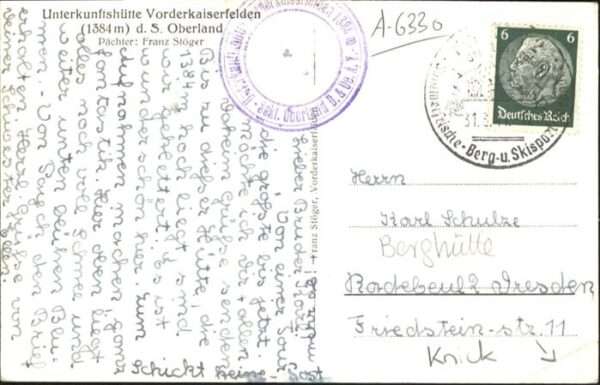 Unterkunftshütte Vorderkaiserfelden
(1384 m) d. S. Oberland
Pächter: Franz Stöger
A-6330
6 6
Deutsches Reich
31.
Berg-u. Skisport
Lieber Bruder Karl!
Von einer Tour
die größte bis jetzt.
möchte ich Dir + allen
daheim Grüße senden.
Bis zu dieser Hütte, die
1384 m hoch liegt sind
wir geklettert. Es ist
wunderschön hier. Zum
Aufnahmen machen ganz
fantastik. Hier oben liegt
alles noch voll Schnee und
weiter unten blühen Blu-
men. Von den Brief
erhalten. Herzl. Grüße von
Deiner Schwester
Schickt keine Post
mehr!
Franz Stöger, Vorderkaiserfelden
Herrn
Karl Schulze
Berghütte
Radebeul 2 Dresden
Friedstein-str. 11
Knick ↘